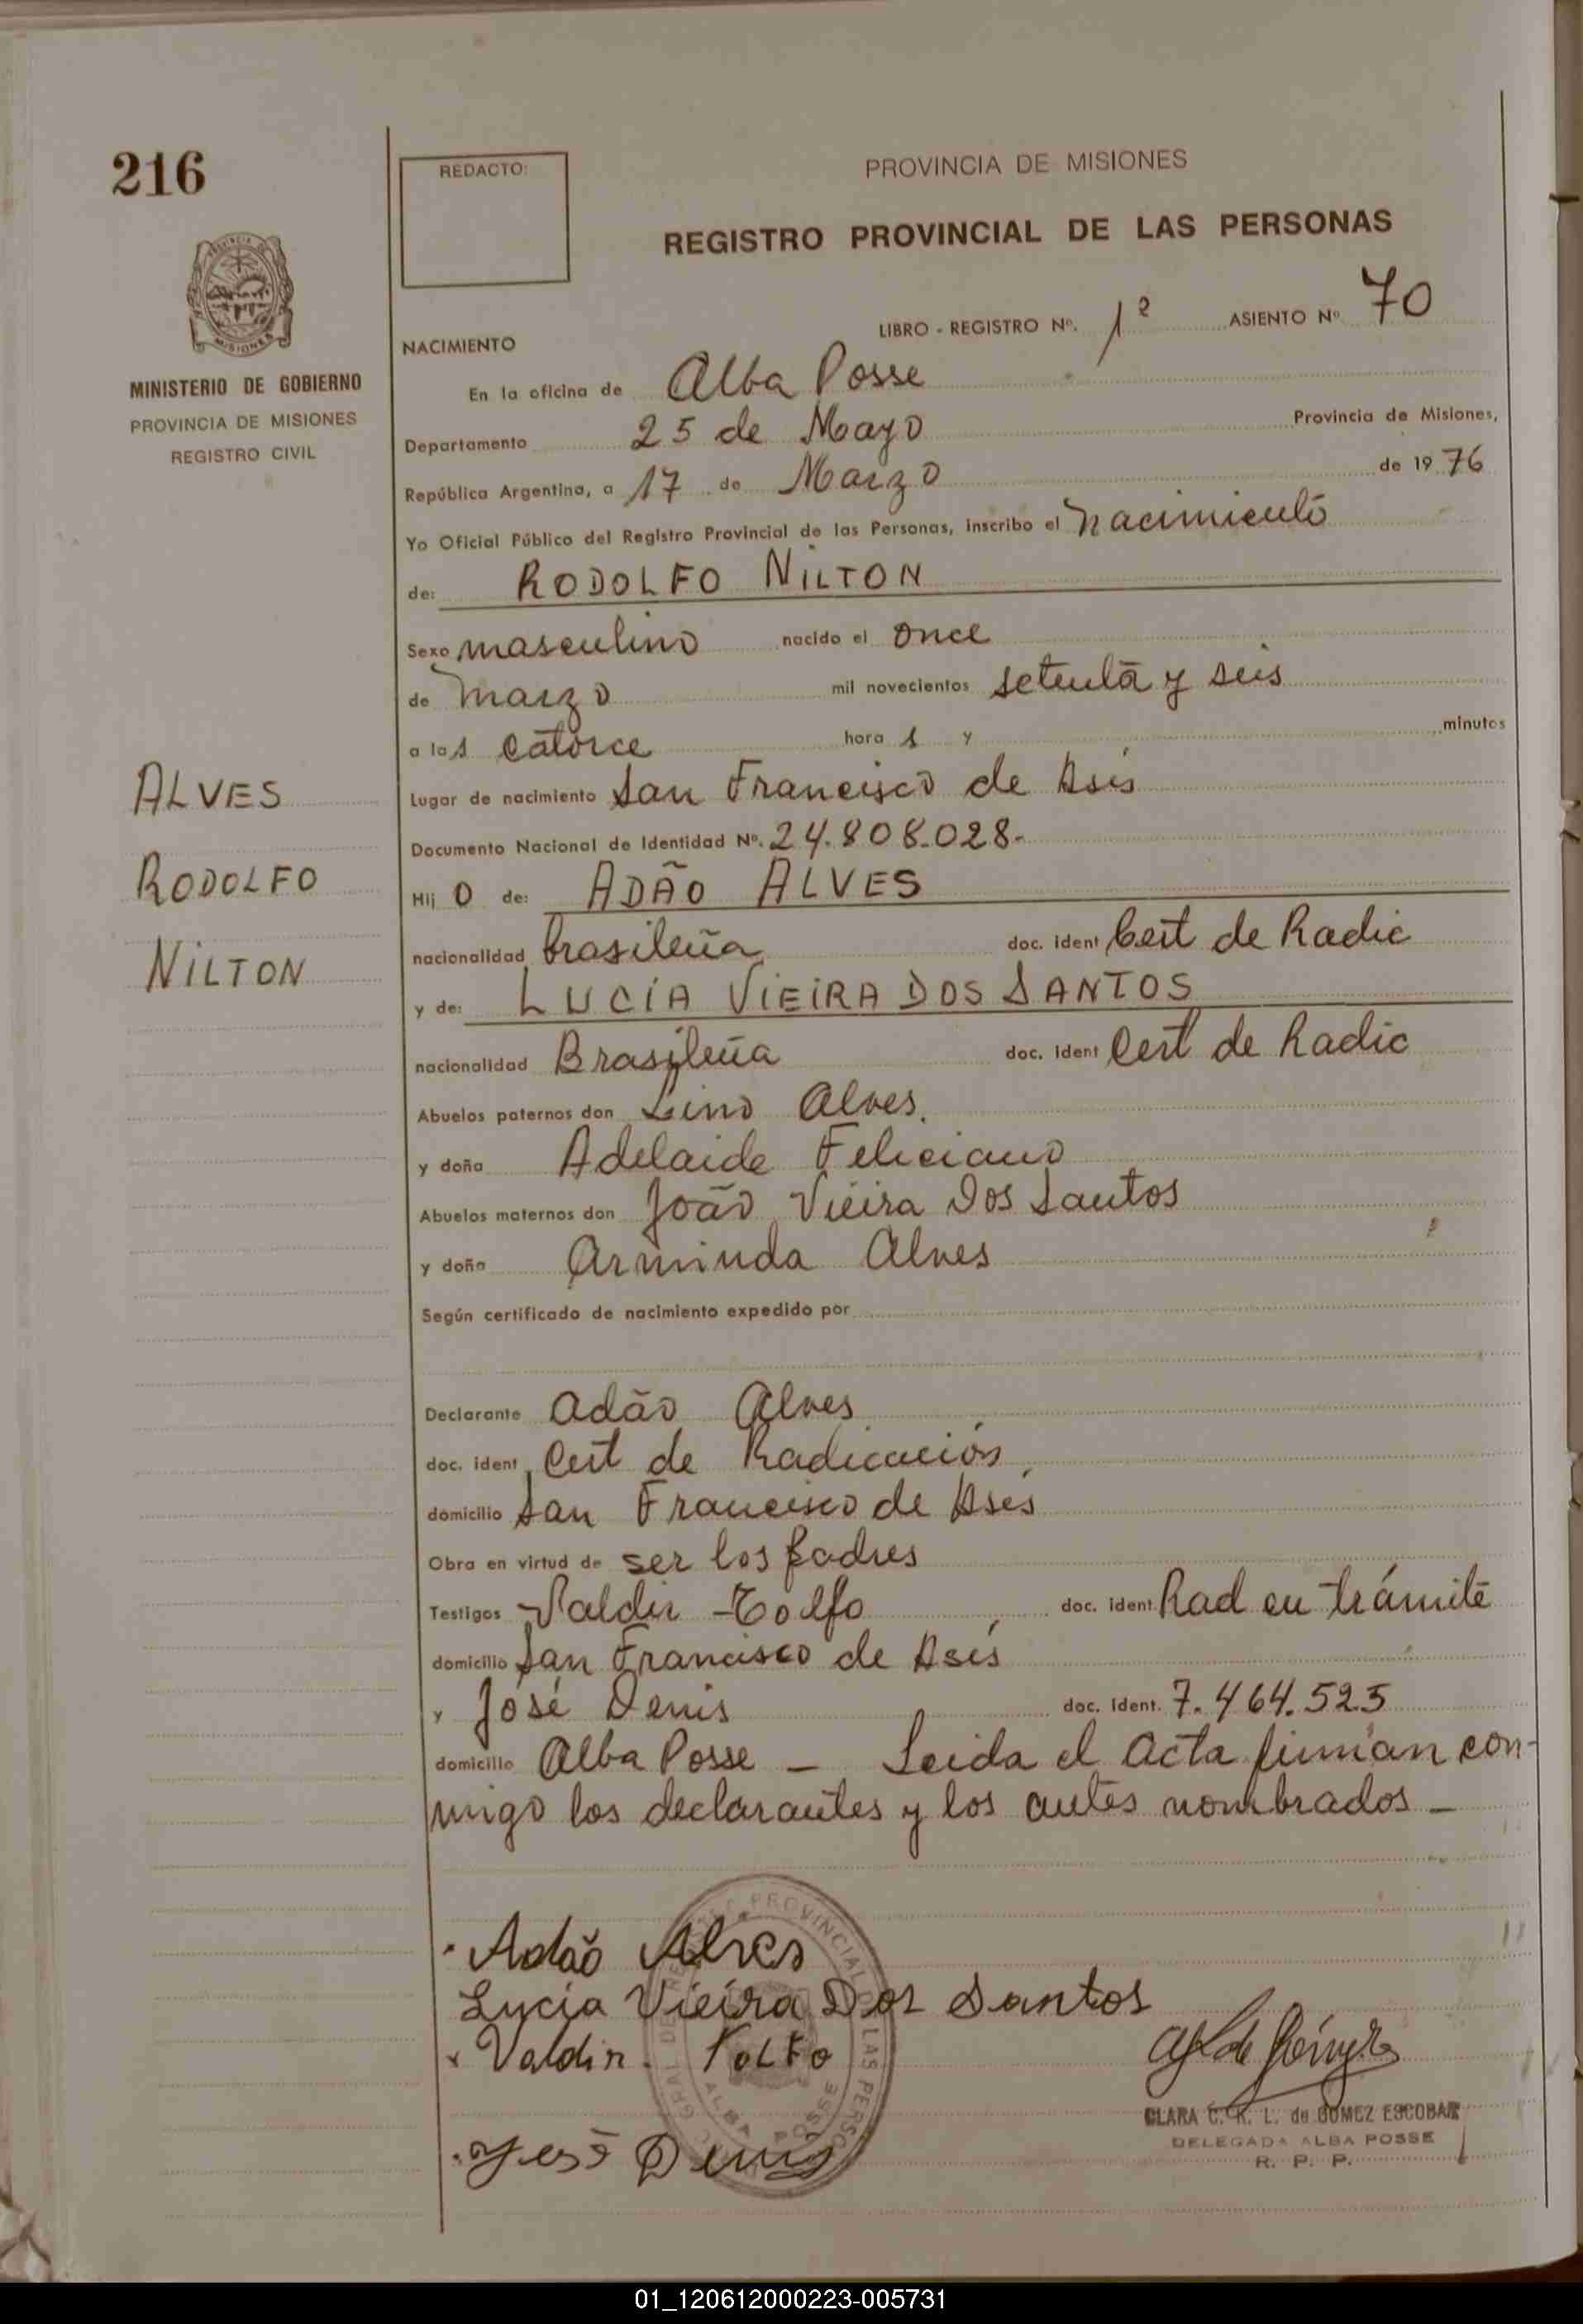 216
REDACTO:
PROVINCIA DE MISIONES
REGISTRO PROVINCIAL DE LAS PERSONAS
MISIONES
MINISTERIO DE GOBIERNO
PROVINCIA DE MISIONES
REGISTRO CIVIL
LIBRO - REGISTRO Nº. 1º ASIENTO Nº 70
NACIMIENTO
En la oficina de Alba Posse
Departamento 25 de Mayo Provincia de Misiones,
República Argentina, a 17 de Marzo de 1976
Yo Oficial Público del Registro Provincial de las Personas, inscribo el nacimiento
de: RODOLFO NILTON
Sexo masculino nacido el once
de marzo mil novecientos setenta y seis
a las catorce hora s y minutos
ALVES
RODOLFO
NILTON
Lugar de nacimiento San Francisco de Asís
Documento Nacional de Identidad Nº. 24.808.028-
Hij o de: ADÃO ALVES
nacionalidad brasileña doc. ident Cert de Radic
y de: LUCÍA VIEIRA DOS SANTOS
nacionalidad Brasileña doc. ident Cert de Radic
Abuelos paternos don Lino Alves.
y doña Adelaide Feliciano
Abuelos maternos don João Vieira Dos Santos
y doña Arminda Alves
Según certificado de nacimiento expedido por
Declarante Adão Alves
doc. ident Cert de Radicación
domicilio San Francisco de Asís
Obra en virtud de ser los padres
Testigos Valdir Tolfo doc. ident. Rad en trámite
domicilio San Francisco de Asís
y José Denis doc. ident. 7.464.525
domicilio Alba Posse — Leida el Acta firman con-
migo los declarantes y los antes nombrados —
Adaõ Alves
Lucia Vieira Dos Santos
Valdir Tolfo
José Denis
ALBA POSSE
CLARA C. K. L. de GOMEZ ESCOBAR
DELEGADA ALBA POSSE
R. P. P.
01_120612000223-005731